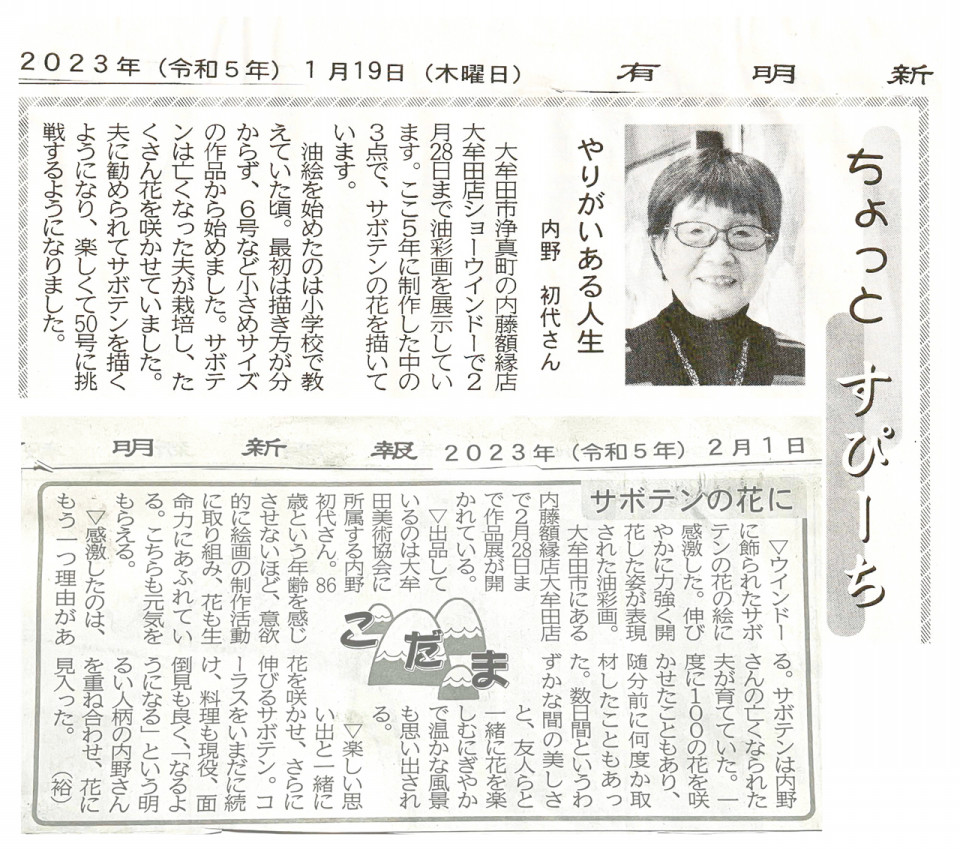 2023年（令和5年）1月19日（木曜日）
有明新
ちょっと すぴーち
やりがいある人生
内野　初代さん
　大牟田市浄真町の内藤額縁店
大牟田店ショーウインドーで２
月28日まで油彩画を展示してい
ます。ここ５年に制作した中の
３点で、サボテンの花を描いて
います。
　油絵を始めたのは小学校で教
えていた頃。最初は描き方が分
からず、６号など小さめサイズ
の作品から始めました。サボテ
ンは亡くなった夫が栽培し、た
くさん花を咲かせていました。
夫に勧められてサボテンを描く
ようになり、楽しくて50号に挑
戦するようになりました。
明新報
2023年（令和5年）2月1日
サボテンの花に
こだま
▽ウインドー
に飾られたサボ
テンの花の絵に
感激した。伸び
やかに力強く開
花した姿が表現
された油彩画。
大牟田市にある
内藤額縁店大牟田店
で２月28日ま
で作品展が開
かれている。
▽出品して
いるのは大牟
田美術協会に
所属する内野
初代さん。86
歳という年齢を感じ
させないほど、意欲
的に絵画の制作活動
に取り組み、花も生
命力にあふれてい
る。こちらも元気を
もらえる。
▽感激したのは、
もう一つ理由があ
る。サボテンは内野
さんの亡くなられた
夫が育てていた。一
度に１００の花を咲
かせたこともあり、
随分前に何度か取
材したこともあっ
た。数日間というわ
ずかな間の美しさ
と、友人らと
一緒に花を楽
しむにぎやか
で温かな風景
も思い出され
る。
▽楽しい思
い出と一緒に
花を咲かせ、さらに
伸びるサボテン。コ
ーラスをいまだに続
け、料理も現役、面
倒見も良く、「なるよ
うになる」という明
るい人柄の内野さん
を重ね合わせ、花に
見入った。（裕）